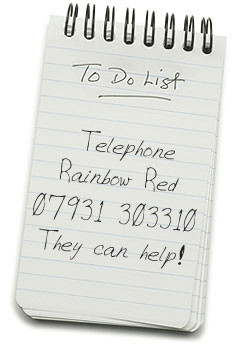 To Do List
Telephone
Rainbow Red
07931 303310
They can help!